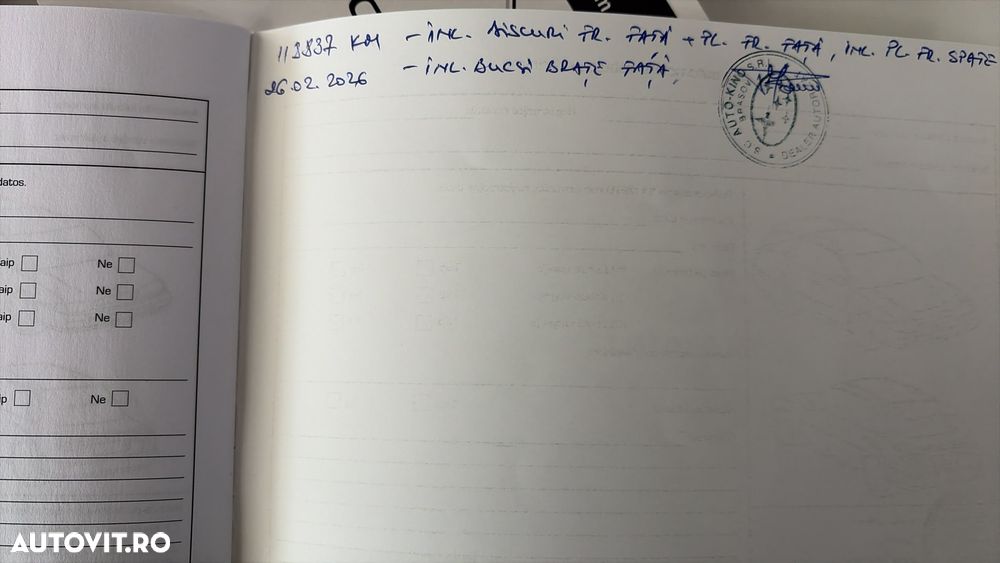 113837 KM - ÎNL. DISCURI FR. FAȚĂ + PL. FR. FAȚĂ, ÎNL. PL FR. SPATE
26.02.2026 - ÎNL. BUCȘI BRAȚE FAȚĂ
S.C AUTO-KING S.R.L
BRAȘOV
DEALER AUTORIZAT
datos.
aip Ne
aip Ne
aip Ne
ip Ne
AUTOVIT.RO